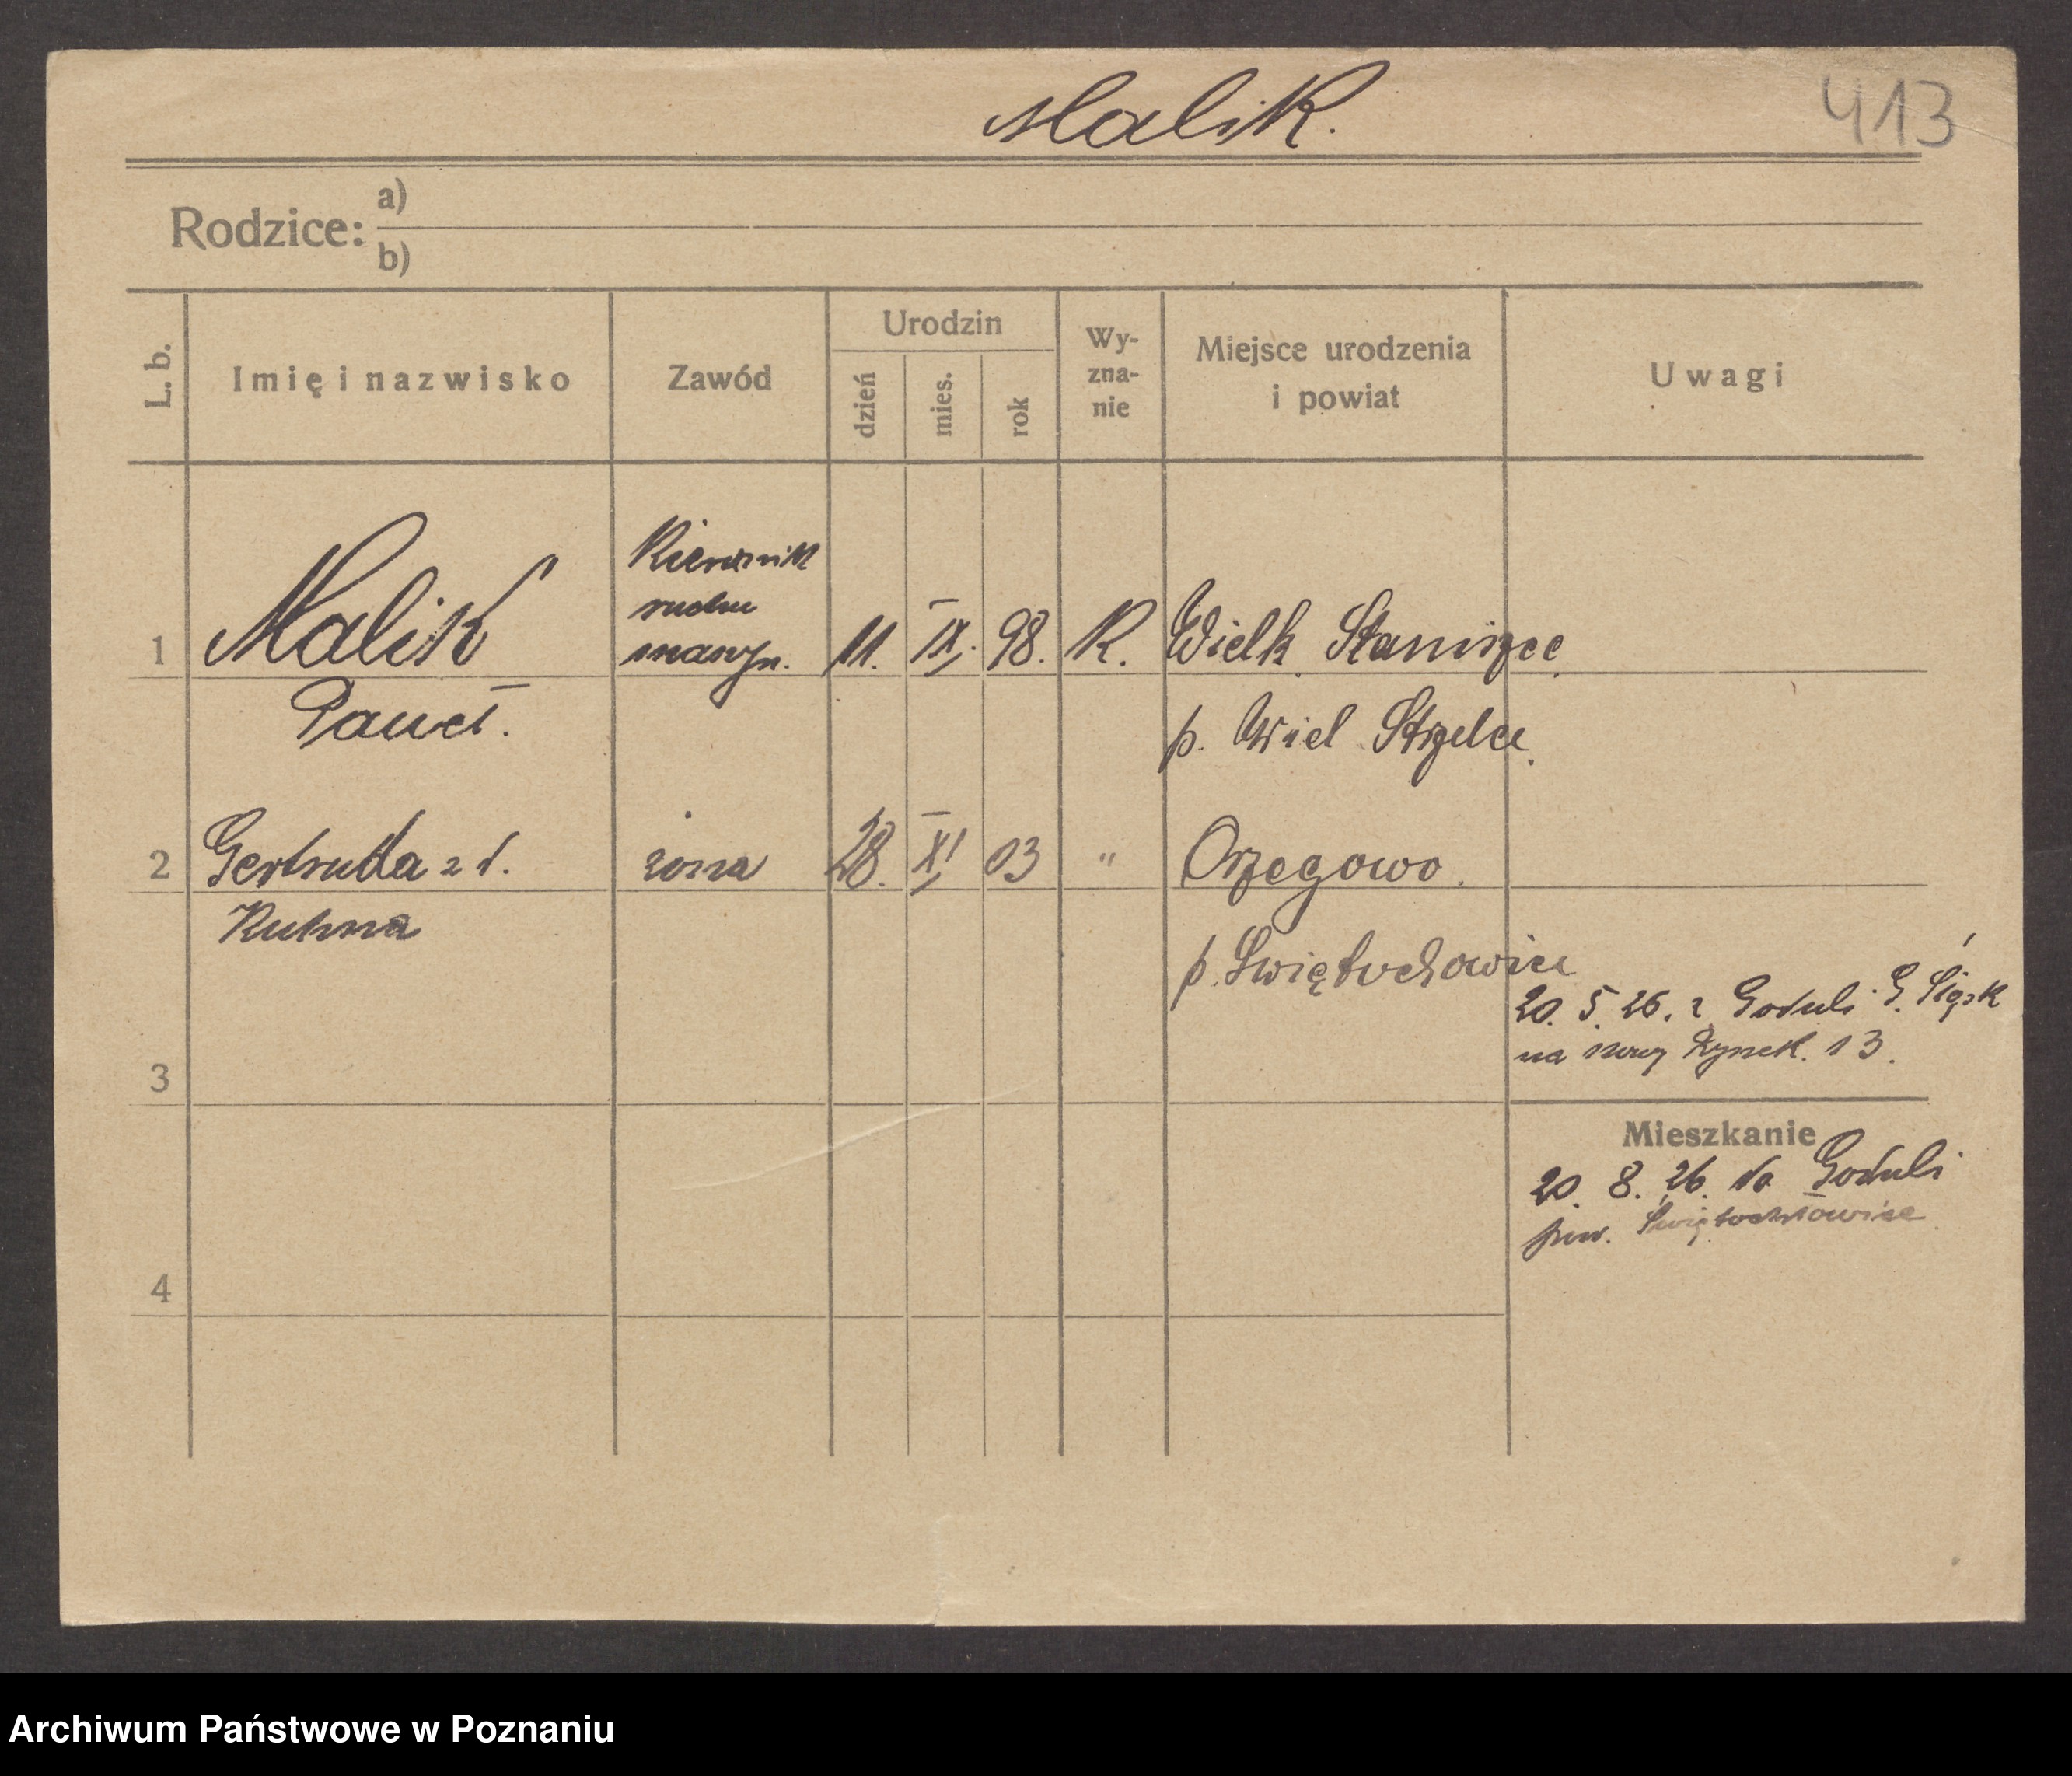 Malik.
413
Rodzice:
a)
b)
L. b.
Imię i nazwisko
Zawód
Urodzin
dzień
mies.
rok
Wy-
zna-
nie
Miejsce urodzenia
i powiat
Uwagi
Kierownik
ruchu
maszyn.
1 Malik 11. IX. 98. K. Wielk. Staniszce
Paweł. p. Wiel Strzelce.
2 Gertruda z d. żona 28. XI 03 " Orzegowo.
Kuhna
p. Swiętochowice
20. 5. 26. z Goduli G. Śląsk
na nowy Rynek. 13.
3
Mieszkanie
20. 8. 26. do Goduli
pow. Świętochłowice
4
Archiwum Państwowe w Poznaniu